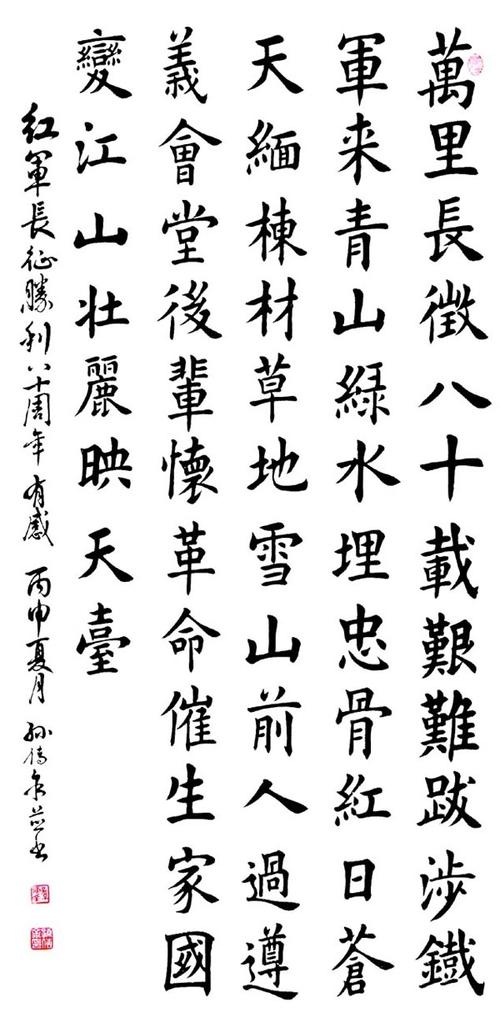 萬里長徵八十載艱難跋涉鐵
軍来青山緑水埋忠骨紅日蒼
天緬棟材草地雪山前人過遵
義會堂後輩懷革命催生家國
變江山壮麗映天臺
红軍長征勝利八十周年有感 丙申夏月 孙